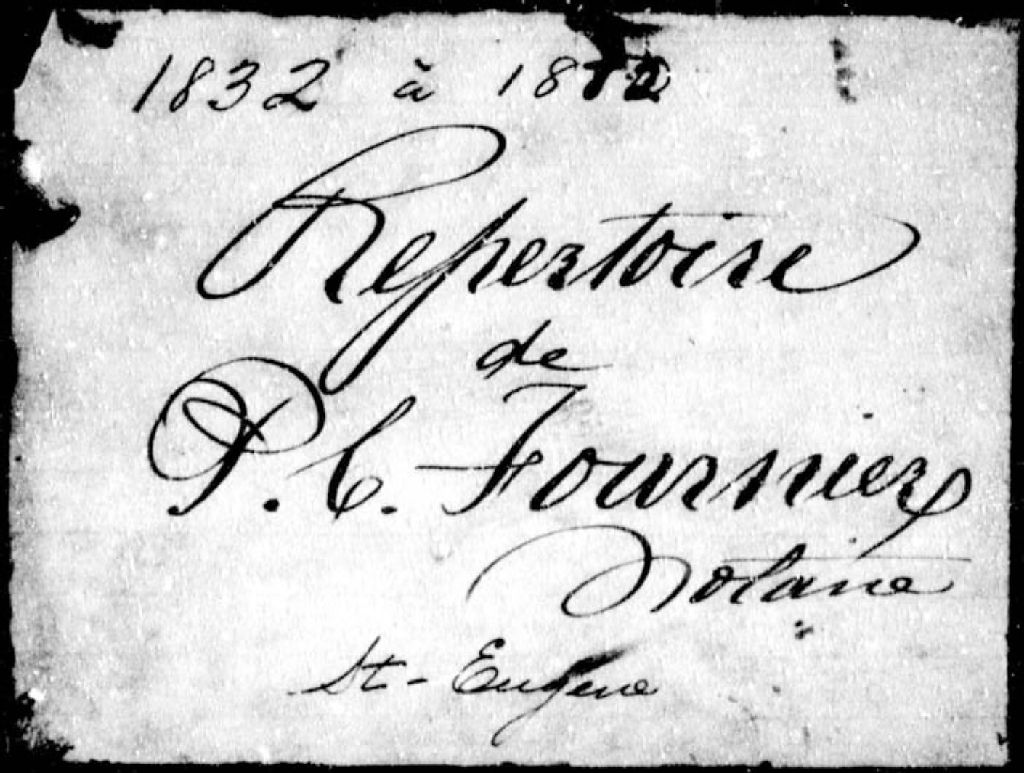 1832 à
Repertoire
de
P. C. Fournier
Notaire
St-Eugene